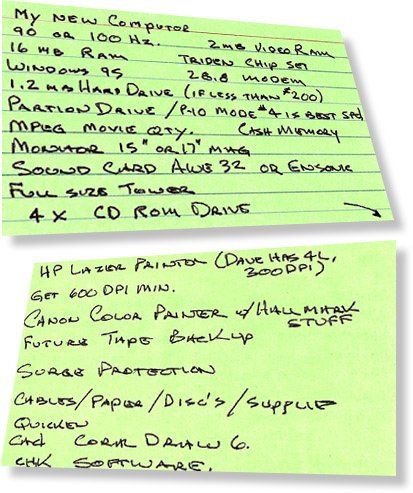 MY NEW COMPUTOR
90 OR 100 HZ. 2MB VIDEO RAM
16 MB RAM TRIDEN CHIP SET
WINDOWS 95 28.8 MODEM
1.2 MB HARD DRIVE (IF LESS THAN $200)
PARTION DRIVE / P-10 MODE #4 IS BEST SPD
MPEG MOVIE QTY. CASH MEMORY
MONITOR 15" OR 17" MAG
SOUND CARD AWE 32 OR ENSONIC
FULL SIZE TOWER
4 X CD ROM DRIVE
HP LAZER PRINTER (DAVE HAS 4L,
300 DPI)
GET 600 DPI MIN.
CANON COLOR PRINTER W/HALLMARK
STUFF
FUTURE TAPE BACKUP
SURGE PROTECTION
CABLES/PAPER/DISC'S/SUPPLIE
QUICKEN
CORAL DRAW 6.
CHK SOFTWARE.